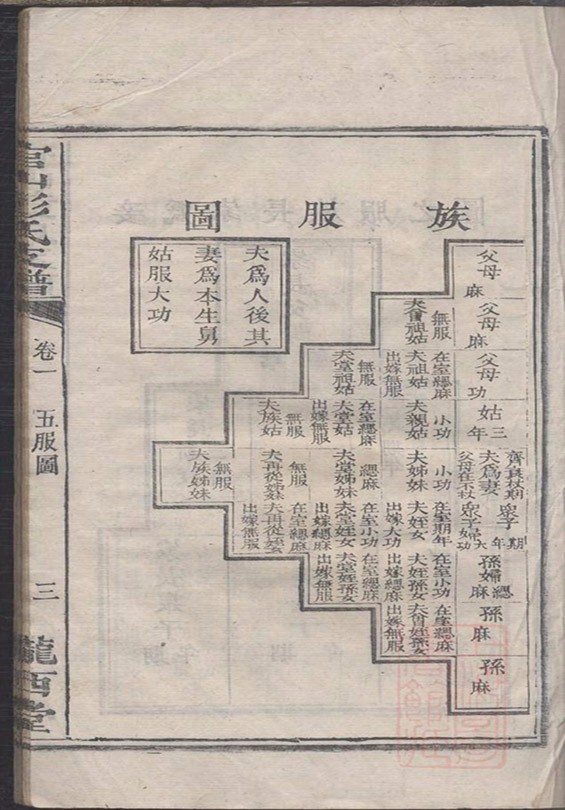 族服圖
夫為人後其
妻為本生舅
姑服大功
父母
麻
父母
麻
夫曾祖姑
無服
父母
功
夫祖姑
在室緦麻
出嫁無服
夫堂祖姑
無服
姑三
年
夫親姑
小功
夫堂姑
在室緦麻
出嫁無服
夫族姑
無服
齊衰杖期
夫為妻
父母在不杖
夫姊妹
小功
夫堂姊妹
緦麻
夫再從姊妹
無服
夫族姊妹
無服
眾子
期年
眾子婦
大功
夫姪女
在室期年
出嫁大功
夫堂姪女
在室小功
出嫁緦麻
夫再從姪女
在室緦麻
出嫁無服
孫婦
緦麻
夫姪孫女
在室小功
出嫁緦麻
夫堂姪孫女
在室緦麻
出嫁無服
孫
麻
夫曾姪孫女
在室緦麻
出嫁無服
孫
麻
官山彭氏支譜
卷一
五服圖
三
隴西堂